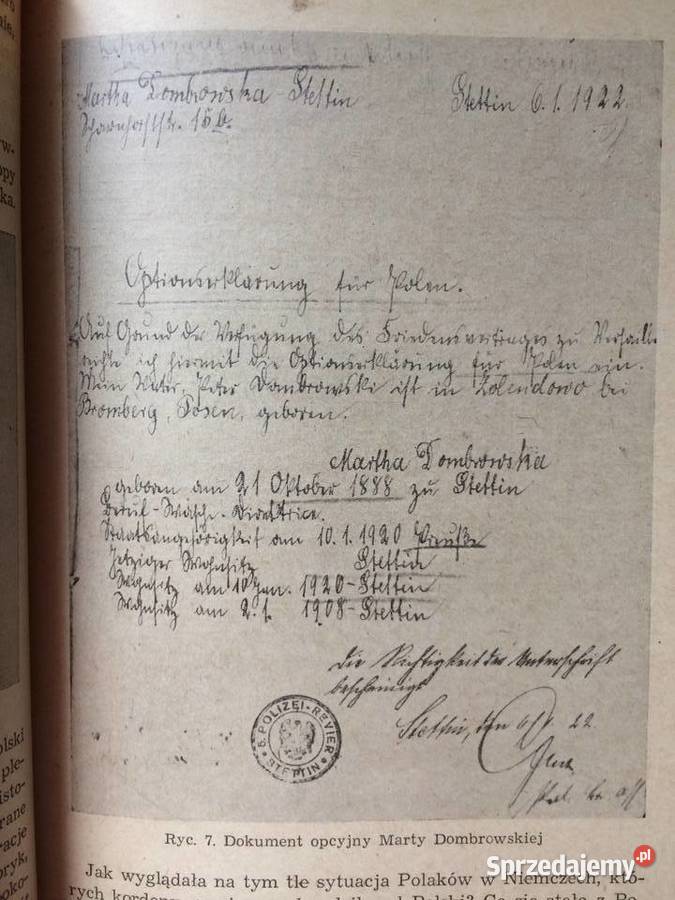 Martha Dombrowska - Stettin
Stettin 6.1.1922.
Scharnhorststr. 15b.
Optionserklärung für Polen.
Auf Grund der Verfügung des Friedensvertrages zu Versaille
reiche ich hiermit die Optionserklärung für Polen ein.
Mein Vater, Peter Dombrowski ist in Zolendowo bei
Bromberg, Posen, geboren.
Martha Dombrowska
geboren am 21 Oktober 1888 zu Stettin
Beruf - Wäsche-Direktrice.
Staatsangehörigkeit am 10.1.1920 Preuße
Jetziger Wohnsitz Stettin
Wohnsitz am 10 Jan. 1920 - Stettin
Wohnsitz am 2.1. 1908 - Stettin
Die Richtigkeit der Unterschrift
bescheinigt
Stettin, den 6/1 22
5. POLIZEI-REVIER
STETTIN
Ryc. 7. Dokument opcyjny Marty Dombrowskiej
Jak wyglądała na tym tle sytuacja Polaków w Niemczech, któ-
rych kordon
olski
ple-
isto-
rane
racje
bryk,
oko-
w-
opy
ka.
Sprzedajemy.pl